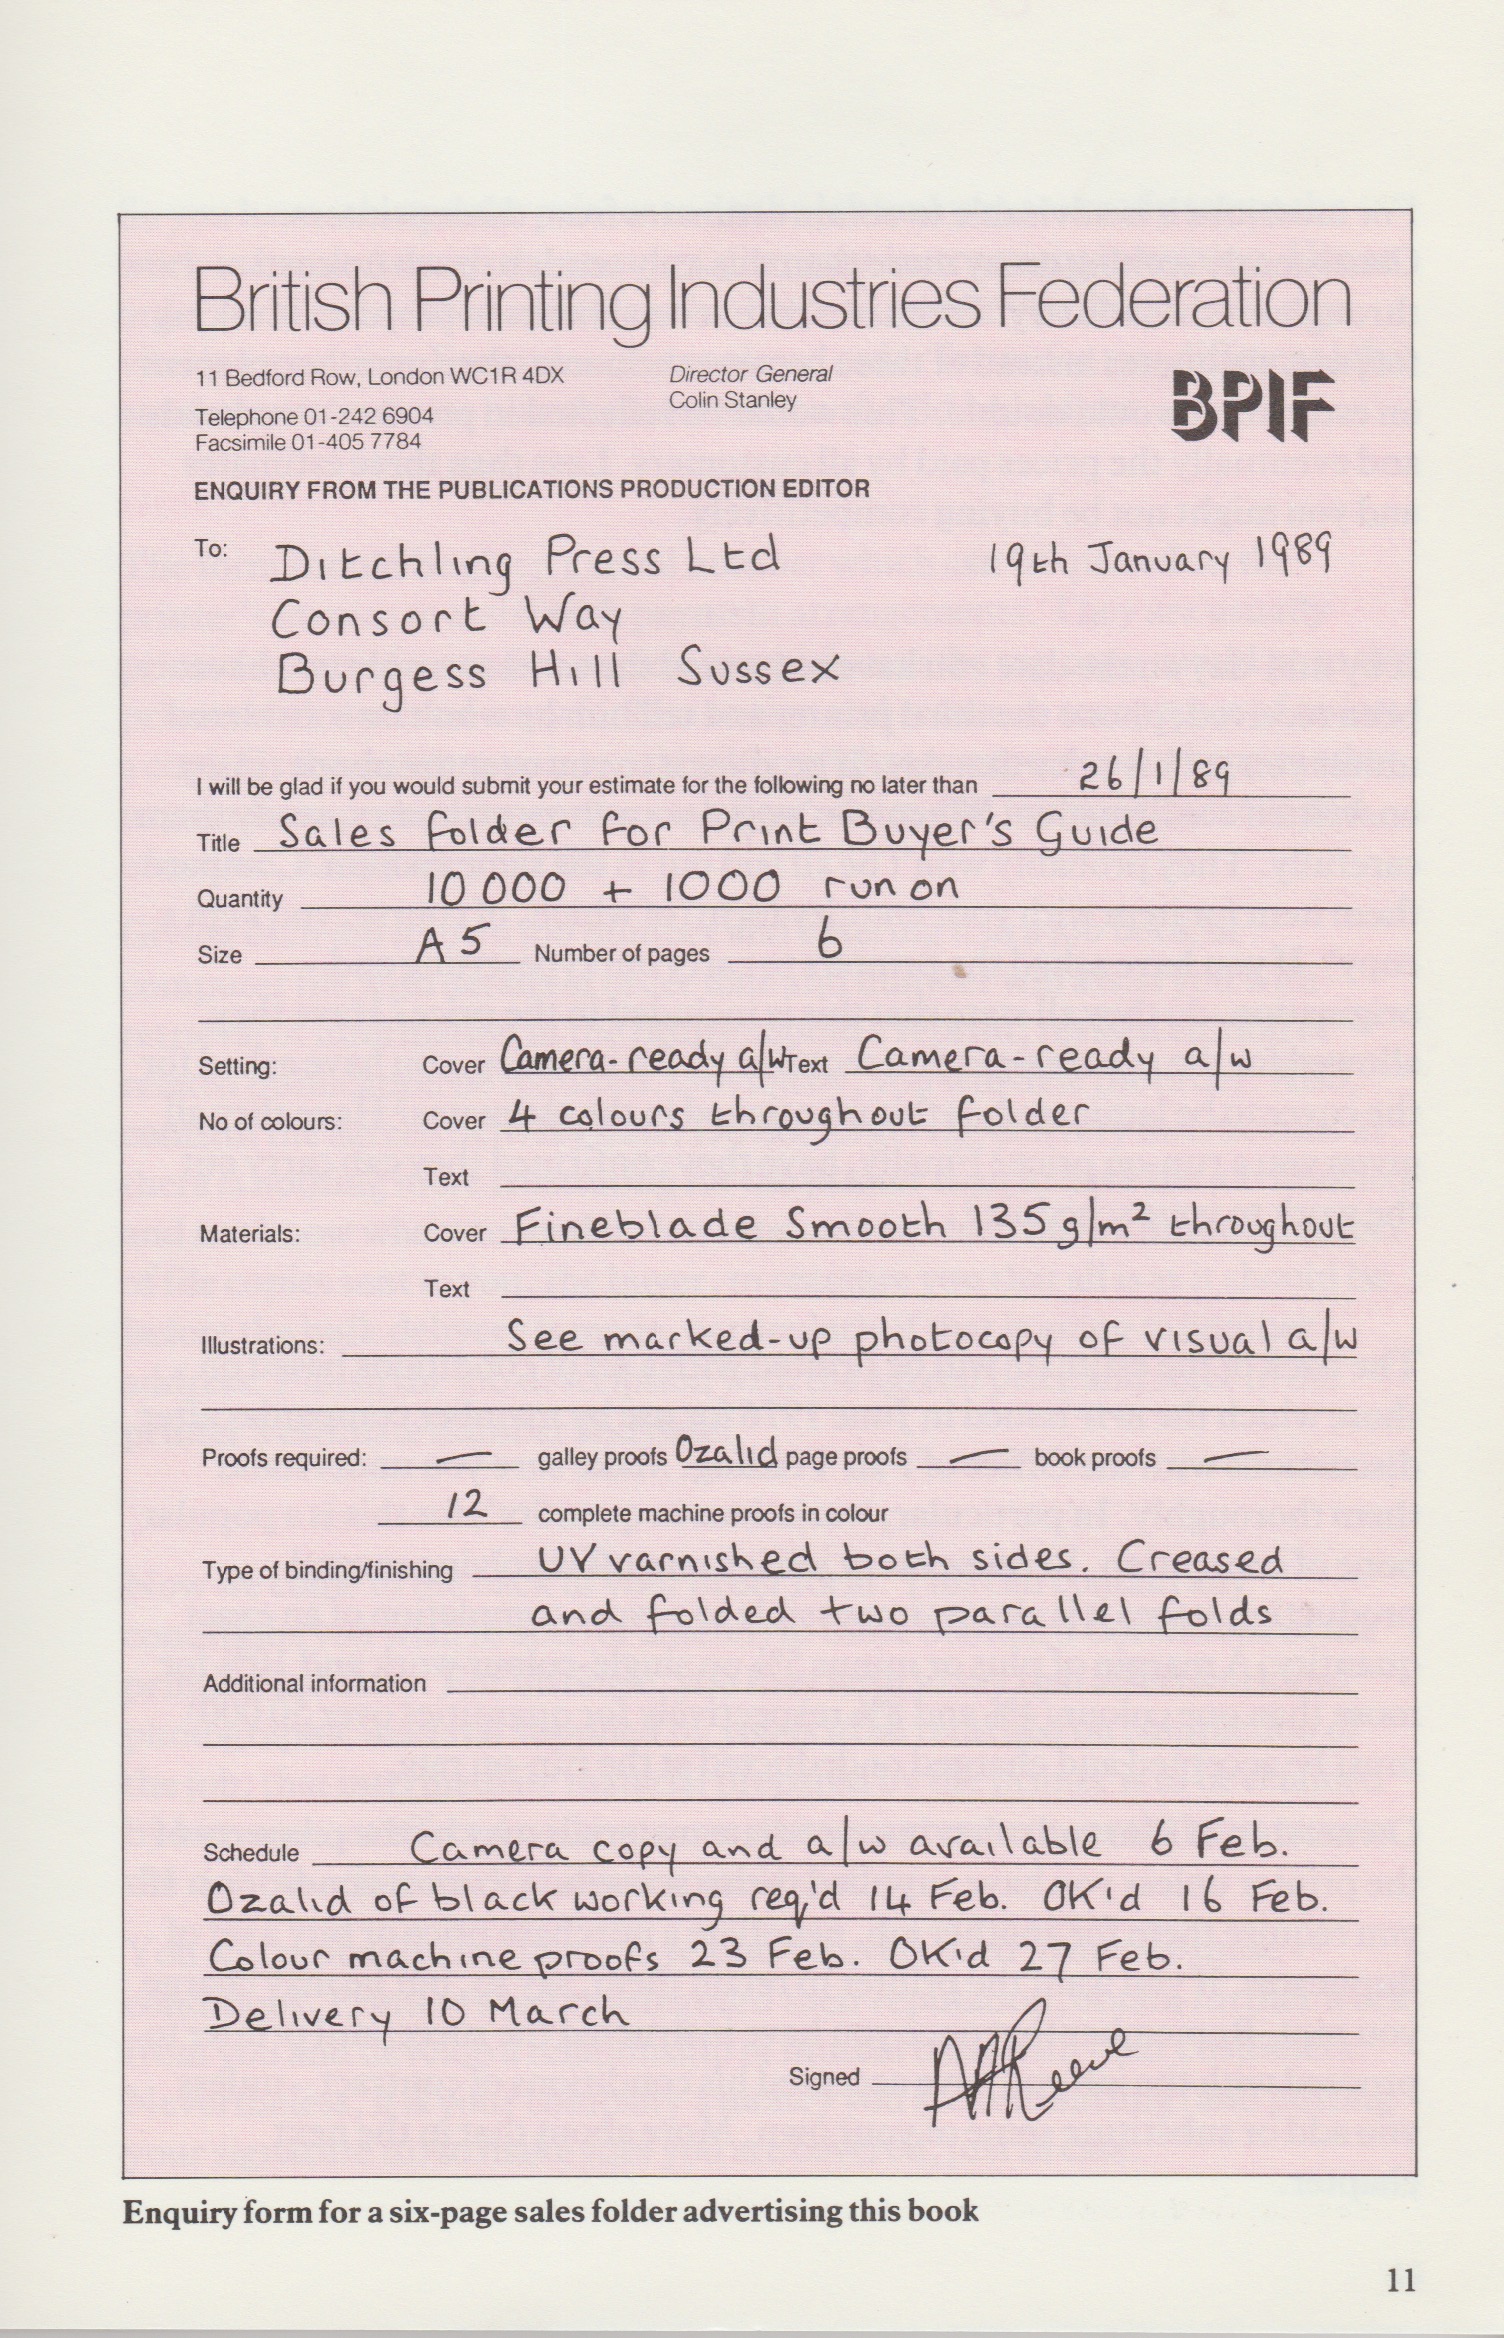 British Printing Industries Federation
11 Bedford Row, London WC1R 4DX
Telephone 01-242 6904
Facsimile 01-405 7784
Director General
Colin Stanley
BPIF
ENQUIRY FROM THE PUBLICATIONS PRODUCTION EDITOR
To: Ditchling Press Ltd 19th January 1989
Consort Way
Burgess Hill Sussex
I will be glad if you would submit your estimate for the following no later than 26/1/89
Title Sales folder for Print Buyer's Guide
Quantity 10 000 + 1000 run on
Size A5 Number of pages 6
Setting: Cover Camera-ready a/w Text Camera-ready a/w
No of colours: Cover 4 colours throughout folder
Text
Materials: Cover Fineblade Smooth 135 g/m² throughout
Text
Illustrations: See marked-up photocopy of visual a/w
Proofs required: — galley proofs Ozalid page proofs — book proofs —
12 complete machine proofs in colour
Type of binding/finishing UV varnished both sides. Creased
and folded two parallel folds
Additional information
Schedule Camera copy and a/w available 6 Feb.
Ozalid of black working req'd 14 Feb. OK'd 16 Feb.
Colour machine proofs 23 Feb. OK'd 27 Feb.
Delivery 10 March
Signed
Enquiry form for a six-page sales folder advertising this book
11